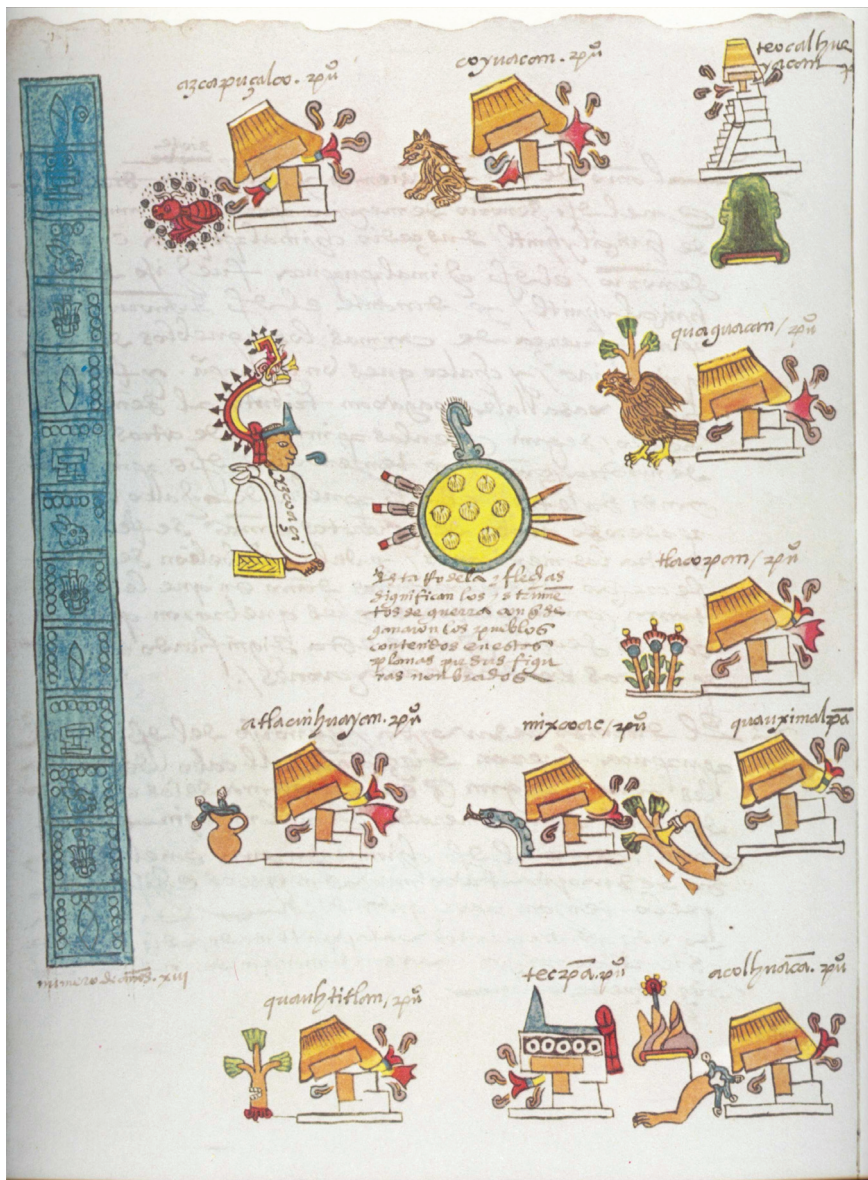 azcapuçalco. pũ
coyuacan. pũ
teocalhue
yacan pũ
quaguacan / pũ
yzcoaçi
Esta Rodela y flechas
significan los ynstrume
tos de guerra con q̃ se
ganaron los pueblos
contenidos en estas
planas que sus figu
ras nonbrados
tlacopan / pũ
atlacuihuayan. pũ
mixcoac / pũ
quauximalpã
numero de años. xiii
quauhtitlan / pũ
tecpã. pũ
acolhuacã. pũ